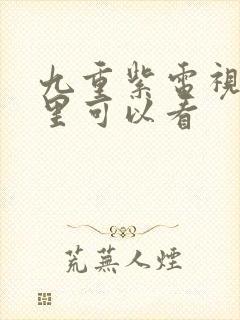 九重紫電視
里可以看
荒蕪人煙